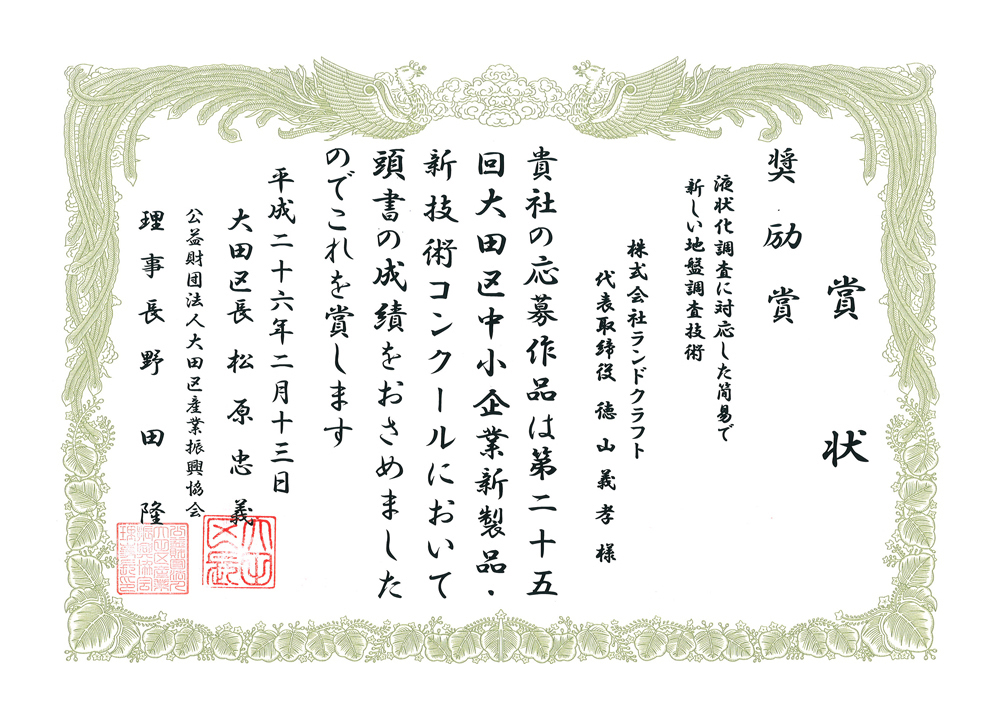 賞状
奨励賞
液状化調査に対応した简易で
新しい地盤調査技術
株式会社ランドクラフト
代表取締役 徳山義孝 様
貴社の応募作品は第二十五
回大田区中小企業新製品・
新技術コンクールにおいて
頭書の成績をおさめました
のでこれを賞します
平成二十六年二月十三日
大田区長 松原忠義
公益財団法人大田区産業振興協会
理事長 野田 隆